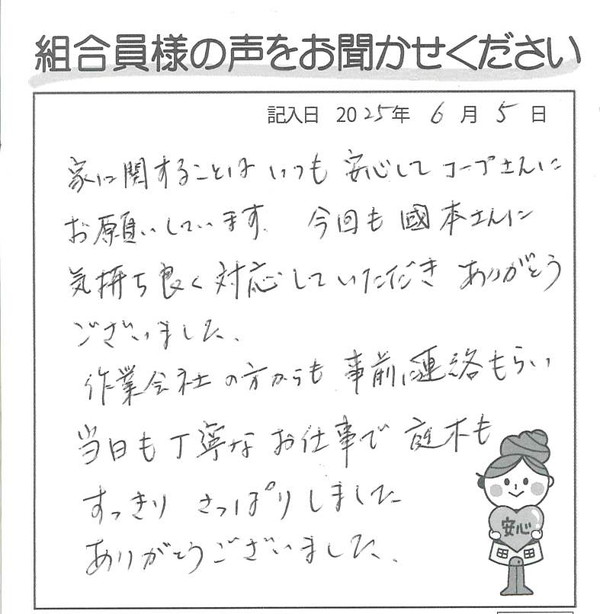 組合員様の声をお聞かせください
記入日 2025年 6月 5日
家に関することは いつも 安心して コープさんに
お願いしています. 今回も 國本さんに
気持ち良く 対応していただき ありがとう
ございました.
作業会社 の方からも 事前に連絡もらい
当日も丁寧な お仕事で 庭木も
すっきり さっぱりしました
ありがとうございました.
安心